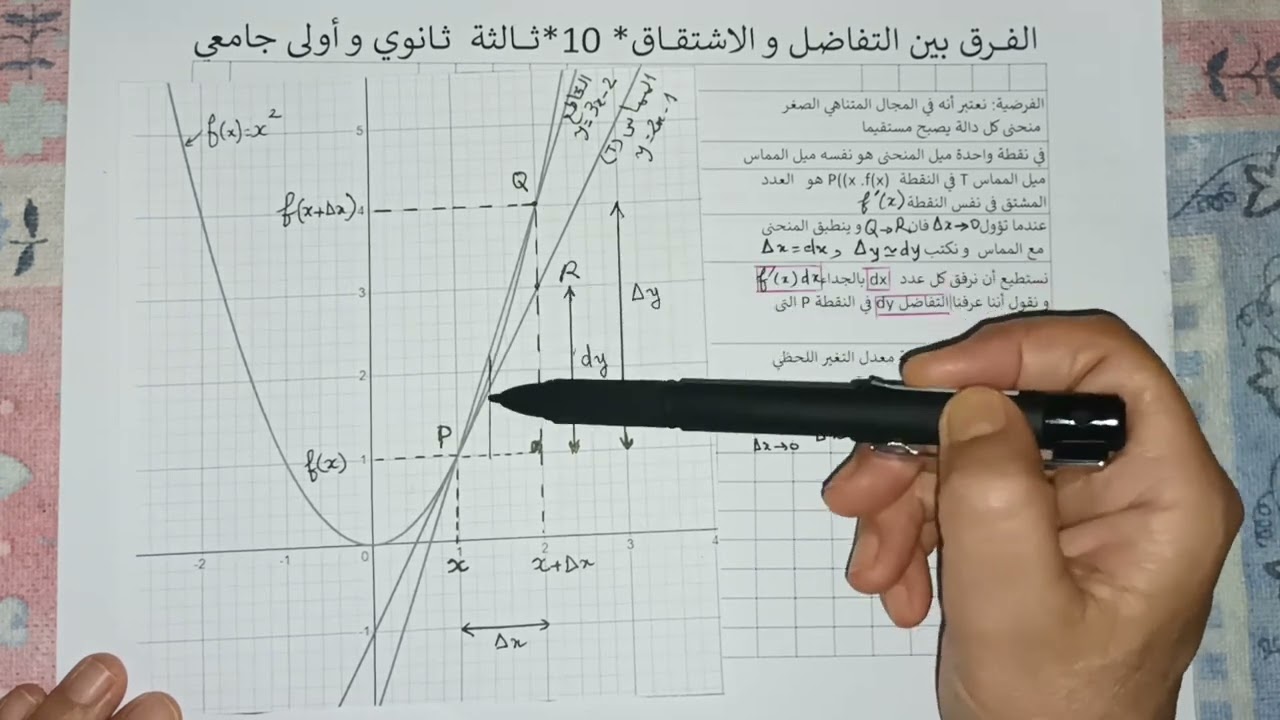 الفرق بين التفاضل و الاشتقاق* 10*ثالثة ثانوي و أولى جامعي
f(x)=x²
القاطع
y=3x-2
المماس (T)
y=2x-1
5
Q
f(x+Δx)
4
R
3
Δy
dy
2
P
f(x)
1
-2
-1
0
1
2
3
4
x
x+Δx
-1
Δx
الفرضية: نعتبر أنه في المجال المتناهي الصغر
منحنى كل دالة يصبح مستقيما
في نقطة واحدة ميل المنحنى هو نفسه ميل المماس
ميل المماس T في النقطة P((x .f(x) هو العدد
المشتق في نفس النقطة f'(x)
عندما تؤول Δx→0 فان Q→R و ينطبق المنحنى
مع المماس و نكتب Δy≃dy و Δx=dx
نستطيع أن نرفق كل عدد dx بالجداء f'(x)dx
و نقول أننا عرفنا التفاضل dy في النقطة P التي
معدل التغير اللحظي
Δx→0